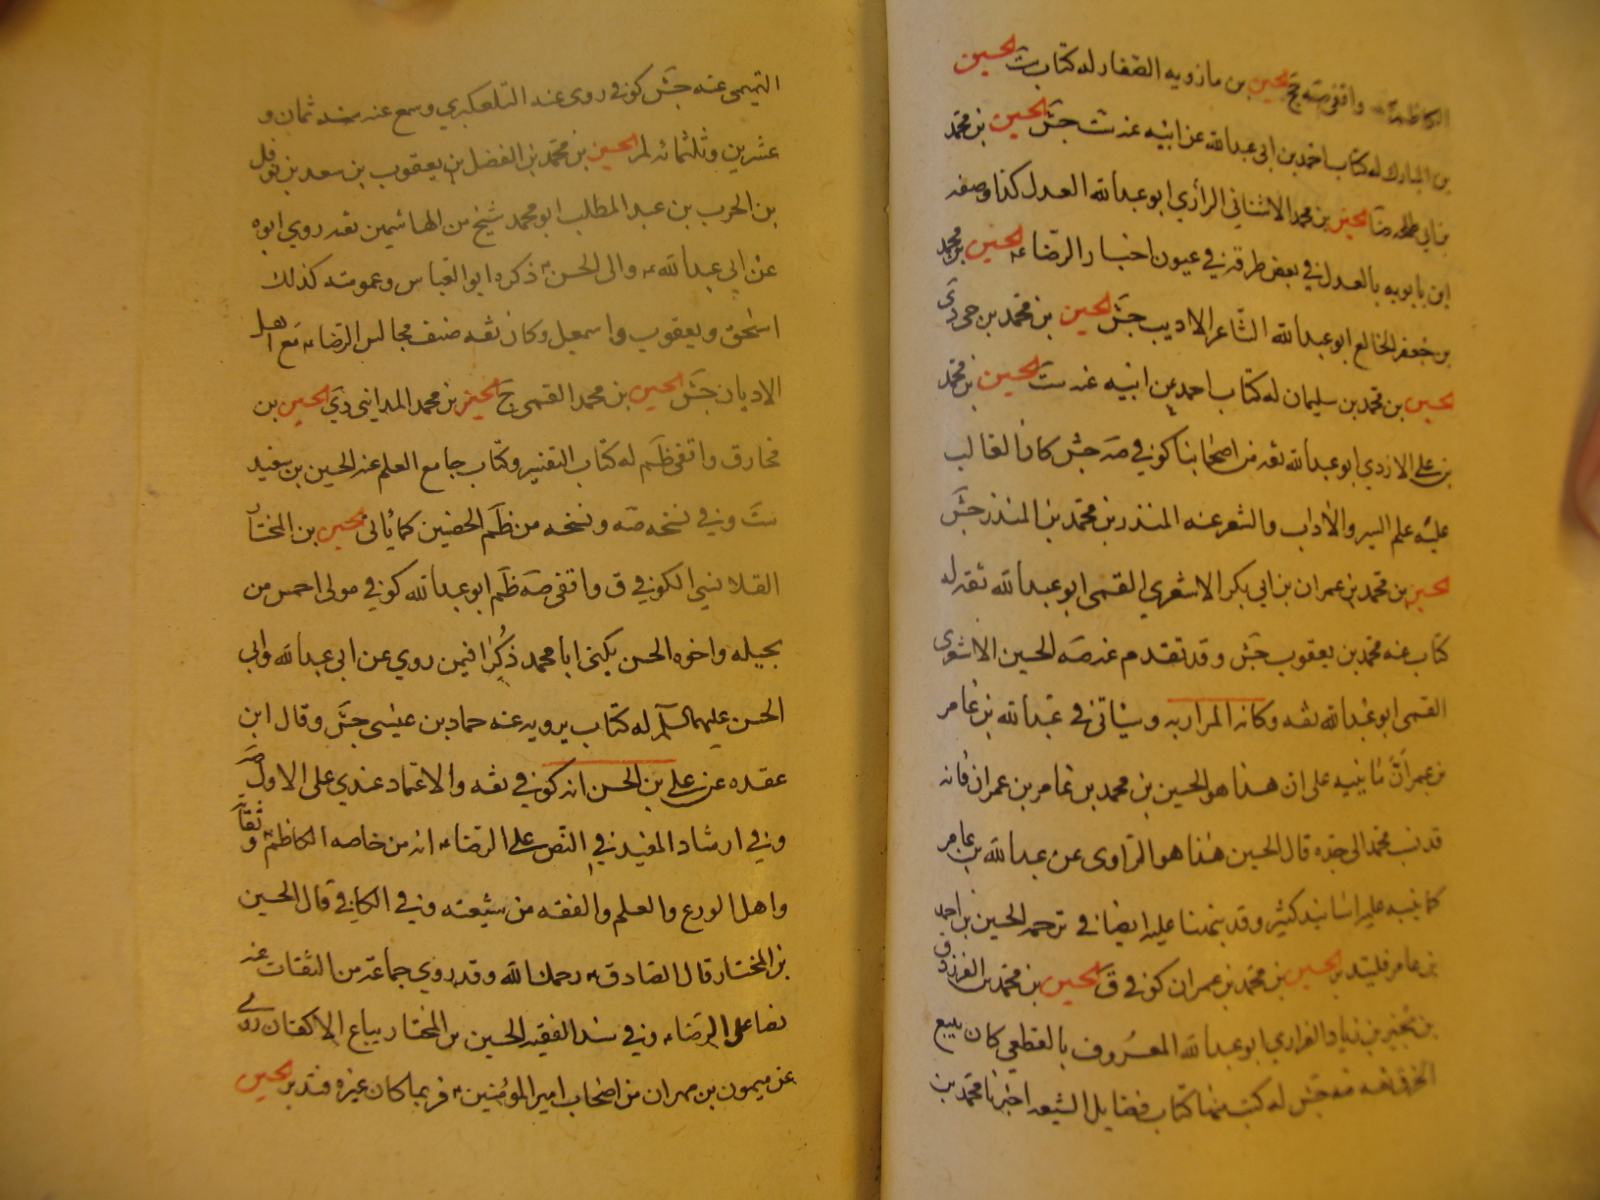 واقفى صه جخ الحسين بن مازويه الصفار له كتاب ست الحسين
بن المبارك له كتاب احمد بن ابى عبدالله عن ابيه عنه ست جش الحسين بن محمد
الحسين بن محمد الاشنانى الرازي ابو عبدالله العدل كذا وصفه
ابن بابويه بالعدل في بعض طرقه في عيون اخبار الرضاء الحسين بن محمد
بن جعفر الخالع ابو عبدالله الشاعر الاديب جش الحسين بن محمد بن حي دى
الحسين بن محمد بن سليمان له كتاب احمد عن ابيه عنه ست الحسين بن محمد
بن علي الازدي ابو عبدالله ثقه من اصحابنا كوفي صه جش كان الغالب
عليه علم السير والاداب والشعر عنه المنذر بن محمد بن المنذر جش
الحسين بن محمد بن عمران بن ابي بكر الاشعري القمى ابو عبدالله ثقه له
كتاب عنه محمد بن يعقوب جش وقد تقدم عن صه الحسين الاشعرى
القمى ابو عبدالله ثقه وكانه المراد به وسياتى في عبدالله بن عامر
بن عمران ما ينبه على ان هذا هو الحسين بن محمد بن عامر بن عمران فانه
قد نسب محمد الى جده قال الحسين هذا هو الراوى عن عبدالله بن عامر
كما نبه عليه اسانيد كثير وقد نبهنا عليه ايضا في ترجمه الحسين بن احمد
بن عامر فليتدبر الحسين بن محمد بن عمران كوفي ق الحسين بن محمد بن الفرزدق
بن بجير بن زياد الفزاري ابو عبدالله المعروف بالقطعي كان يبيع
الخرق ثقه صه جش له كتب منها كتاب فضايل الشيعه اخبرنا محمد بن
التميمى عنه جش كوفي روى عنه التلعكبري وسمع عنه سنه ثمان و
عشرين وثلثمائه لم الحسين بن محمد بن الفضل بن يعقوب بن سعد بن نوفل
بن الحرث بن عبد المطلب ابو محمد شيخ من الهاشمين ثقه روي ابوه
عن ابي عبدالله ع والى الحسن ع ذكره ابو العباس وعمومته كذلك
اسحق ويعقوب واسمعيل وكان ثقه صنف مجالس الرضا ع مع اهل
الاديان جش الحسين بن محمد القمى ج الحسين بن محمد المدائنى دي الحسين بن
مخارق واقفى ظم له كتاب التفسير وكتاب جامع العلم عنه الحسين بن سعيد
ست وفي نسخه صه ونسخه من ظم الحضين كما ياتى الحسين بن المختار
القلانسى الكوفي ق واقفى صه ظم ابو عبدالله كوفي مولى احمس من
بجيله واخوه الحسن يكنى ابا محمد ذكرا فيمن روي عن ابى عبدالله وابى
الحسن عليهما السلام له كتاب يرويه عنه حماد بن عيسى جش وقال ابن
عقده عن علي بن الحسن انه كوفي ثقه والاعتماد عندي على الاول صه
وفي ارشاد المفيد في النص على الرضاء انه من خاصه الكاظم وثقاته
واهل الورع والعلم والفقه من شيعته وفي الكافي قال الحسين
بن المختار قال الصادق ع رحمك الله وقد روي جماعه من الثقات عنه
نصا على الرضاء وفي سند الفقيه الحسين بن المختار بياع الاكفان روى
عن ميمون بن مهران من اصحاب امير المومنين ع فربما كان غيره فتدبر الحسين